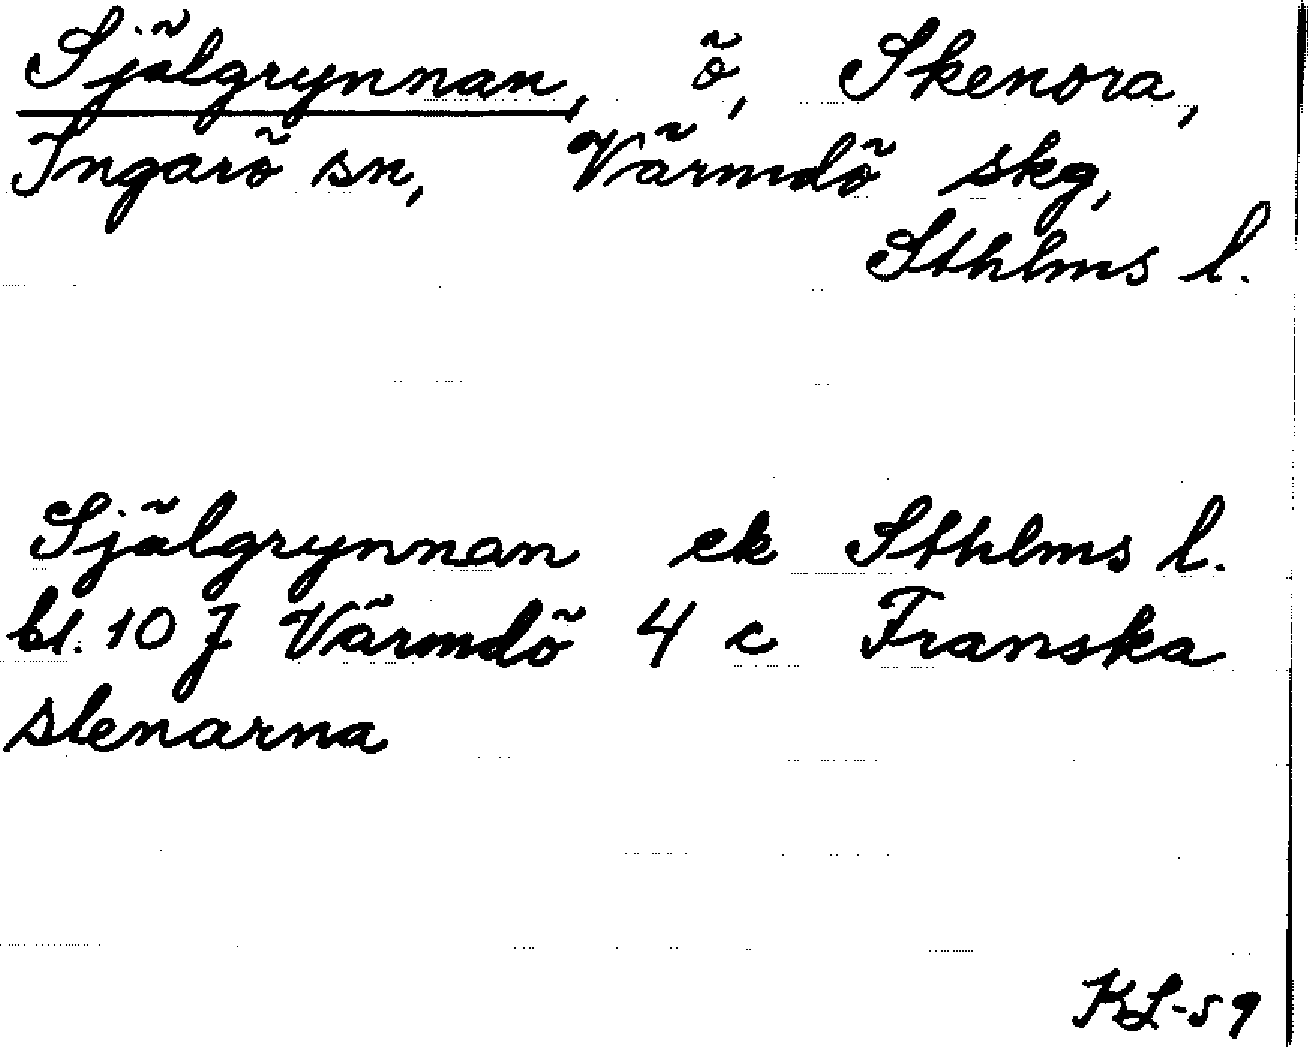 Själgrynnan, ö, Skenora,
Ingarö sn, Värmdö skg,
Sthlms l.
Själgrynnan ek Sthlms l.
bl. 10 J Värmdö 4 c Franska
stenarna
KL-59